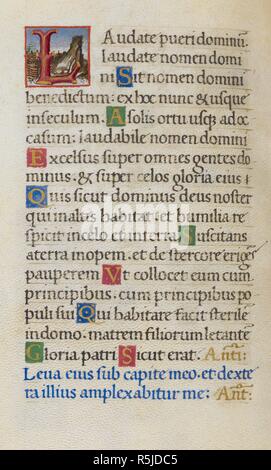 Laudate pueri dominum.
laudate nomen domi
ni Sit nomen domini
benedictum: ex hoc nunc & usque
in seculum. A solis ortu usq3 ad oc
casum: laudabile nomen domini
Excelsus super omnes gentes do
minus: & super celos gloria eius
Quis sicut dominus deus noster
qui in altis habitat: et humilia re
spicit in celo et in terra. Suscitans
a terra inopem: et de stercore eriges
pauperem Ut collocet eum cum
principibus: cum principibus po
puli sui Qui habitare facit sterile
in domo: matrem filiorum letante
Gloria patri Sicut erat. Anti:
Leva eius sub capite meo. et dexte
ra illius amplexabitur me: Ant:
alamy stock photo
alamy
R5JDC5
www.alamy.com